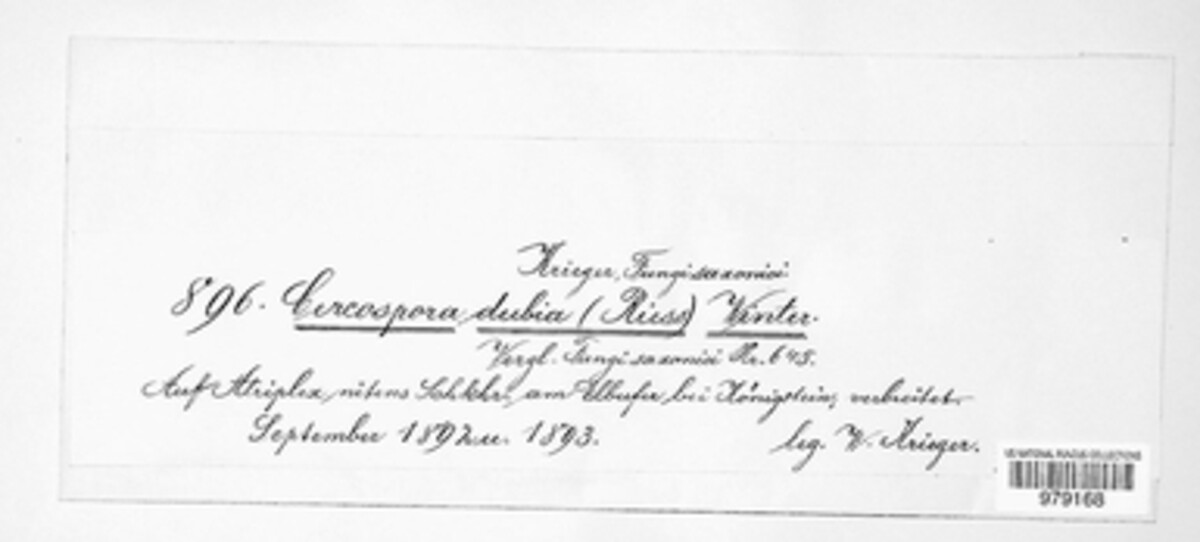 Krieger, Fungi saxonici
896. Cercospora dubia (Riess) Winter.
Vergl. Fungi saxonici Nr. 645.
Auf Atriplex nitens Schkhr. am Elbufer bei Königstein, verbreitet.
September 1892 u. 1893. leg. W. Krieger.
US NATIONAL FUNGUS COLLECTIONS
979168